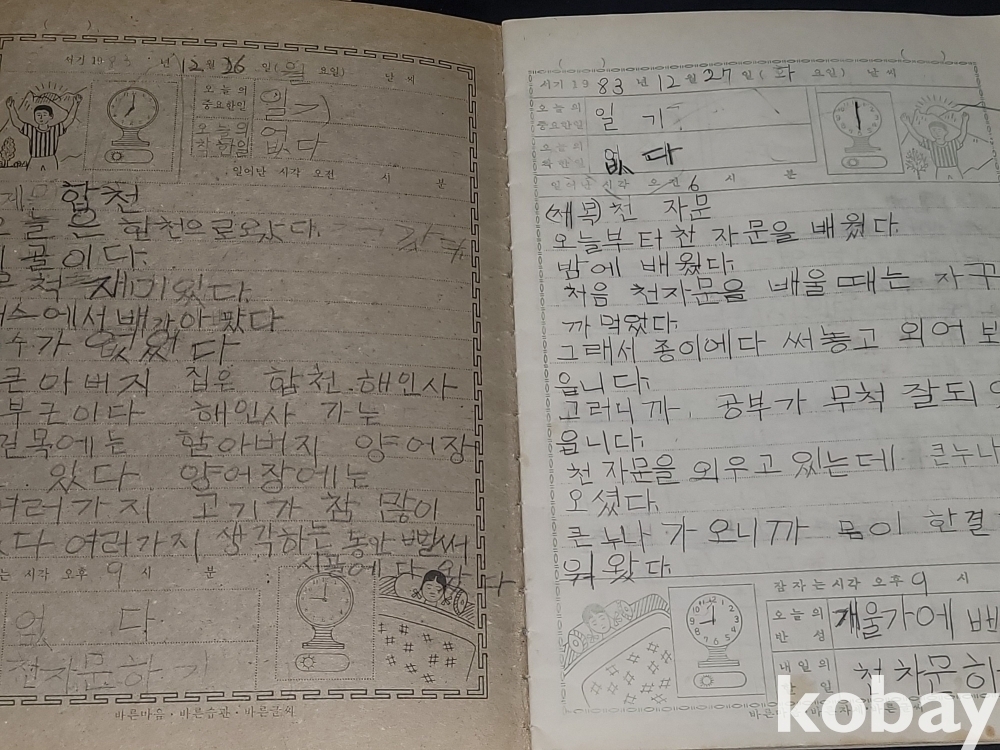 서기 19 83 년 12월 26 일 (월 요일) 날 씨
오늘의 중요한일 일기
오늘의 착한일 없다
일어난 시각 오전 시 분
합천
오늘은 합천으로 왔다.
시골이다
무척 재미있다
버스에서 배가아팠다
수가 없었다
큰아버지 집은 합천.해인사
부근이다 해인사 가는
길목에는 할아버지 양어장
있었다 양어장에는
여러가지 고기가 참 많이
있다 여러가지 생각하는 동안 벌써
시골에 다 왔다
자는 시각 오후 9 시 분
없다
천자문하기
바른마음·바른습관·바른글씨
서기 19 83 년 12 월 27 일 (화 요일) 날 씨
오늘의 중요한일 일기
오늘의 착한일 없다
일어난 시각 오전 6 시 분
(제목) 천 자문
오늘부터 천 자문을 배웠다.
밤에 배웠다.
처음 천자문을 배울때는 자꾸
까먹었다.
그래서 종이에다 써놓고 외어 보
읍니다.
그러니까. 공부가 무척 잘되
읍니다.
천자문을 외우고 있는데 큰누나
오셨다.
큰누나 가 오니까 몸이 한결
워 왔다.
잠자는시각 오후 9 시
오늘의 반성 개울가에
내일의 할일 천자문하
kobay